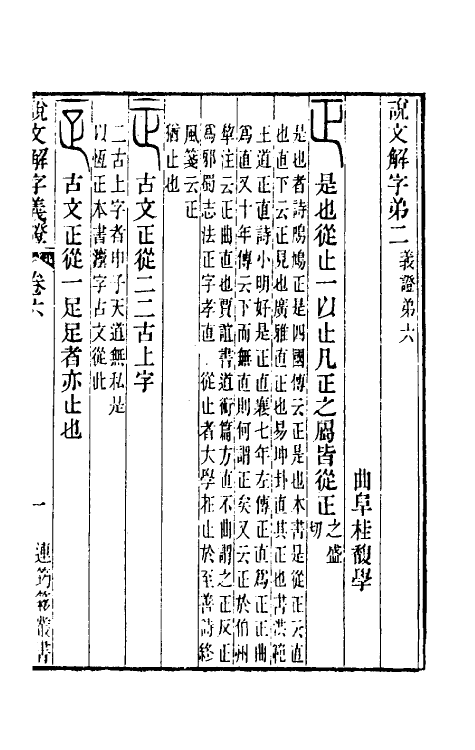 說文解字弟二 義證弟六
曲阜桂馥學
正 是也從止一以止凡正之屬皆從正 之盛切
是也者詩鳲鳩正是四國傳云正是也本書是從正云直
也直下云正見也廣雅直正也易坤卦直其正也書洪範
王道正直詩小明好是正直襄七年左傳正直爲正正曲
爲直又十年傳云下而無直則何謂正矣又云正於伯州
犂注云正曲直也賈誼書道術篇方直不曲謂之正反正
爲邪蜀志法正字孝直 從止者大學在止於至善詩終
風箋云正
猶止也
古文正從二二古上字
二古上字者申子天道無私是
以恆正本書字古文從此
古文正從一足足者亦止也
說文解字義證 卷六 一 連筠簃叢書